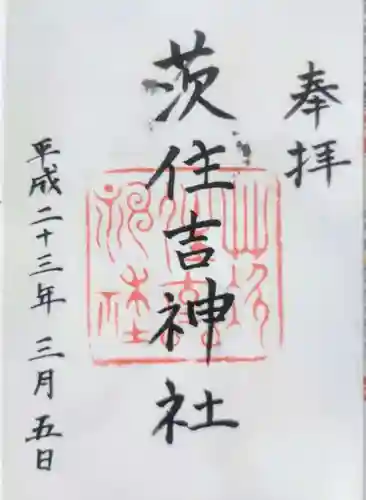 奉拝
茨住吉神社
平成二十三年 三月五日